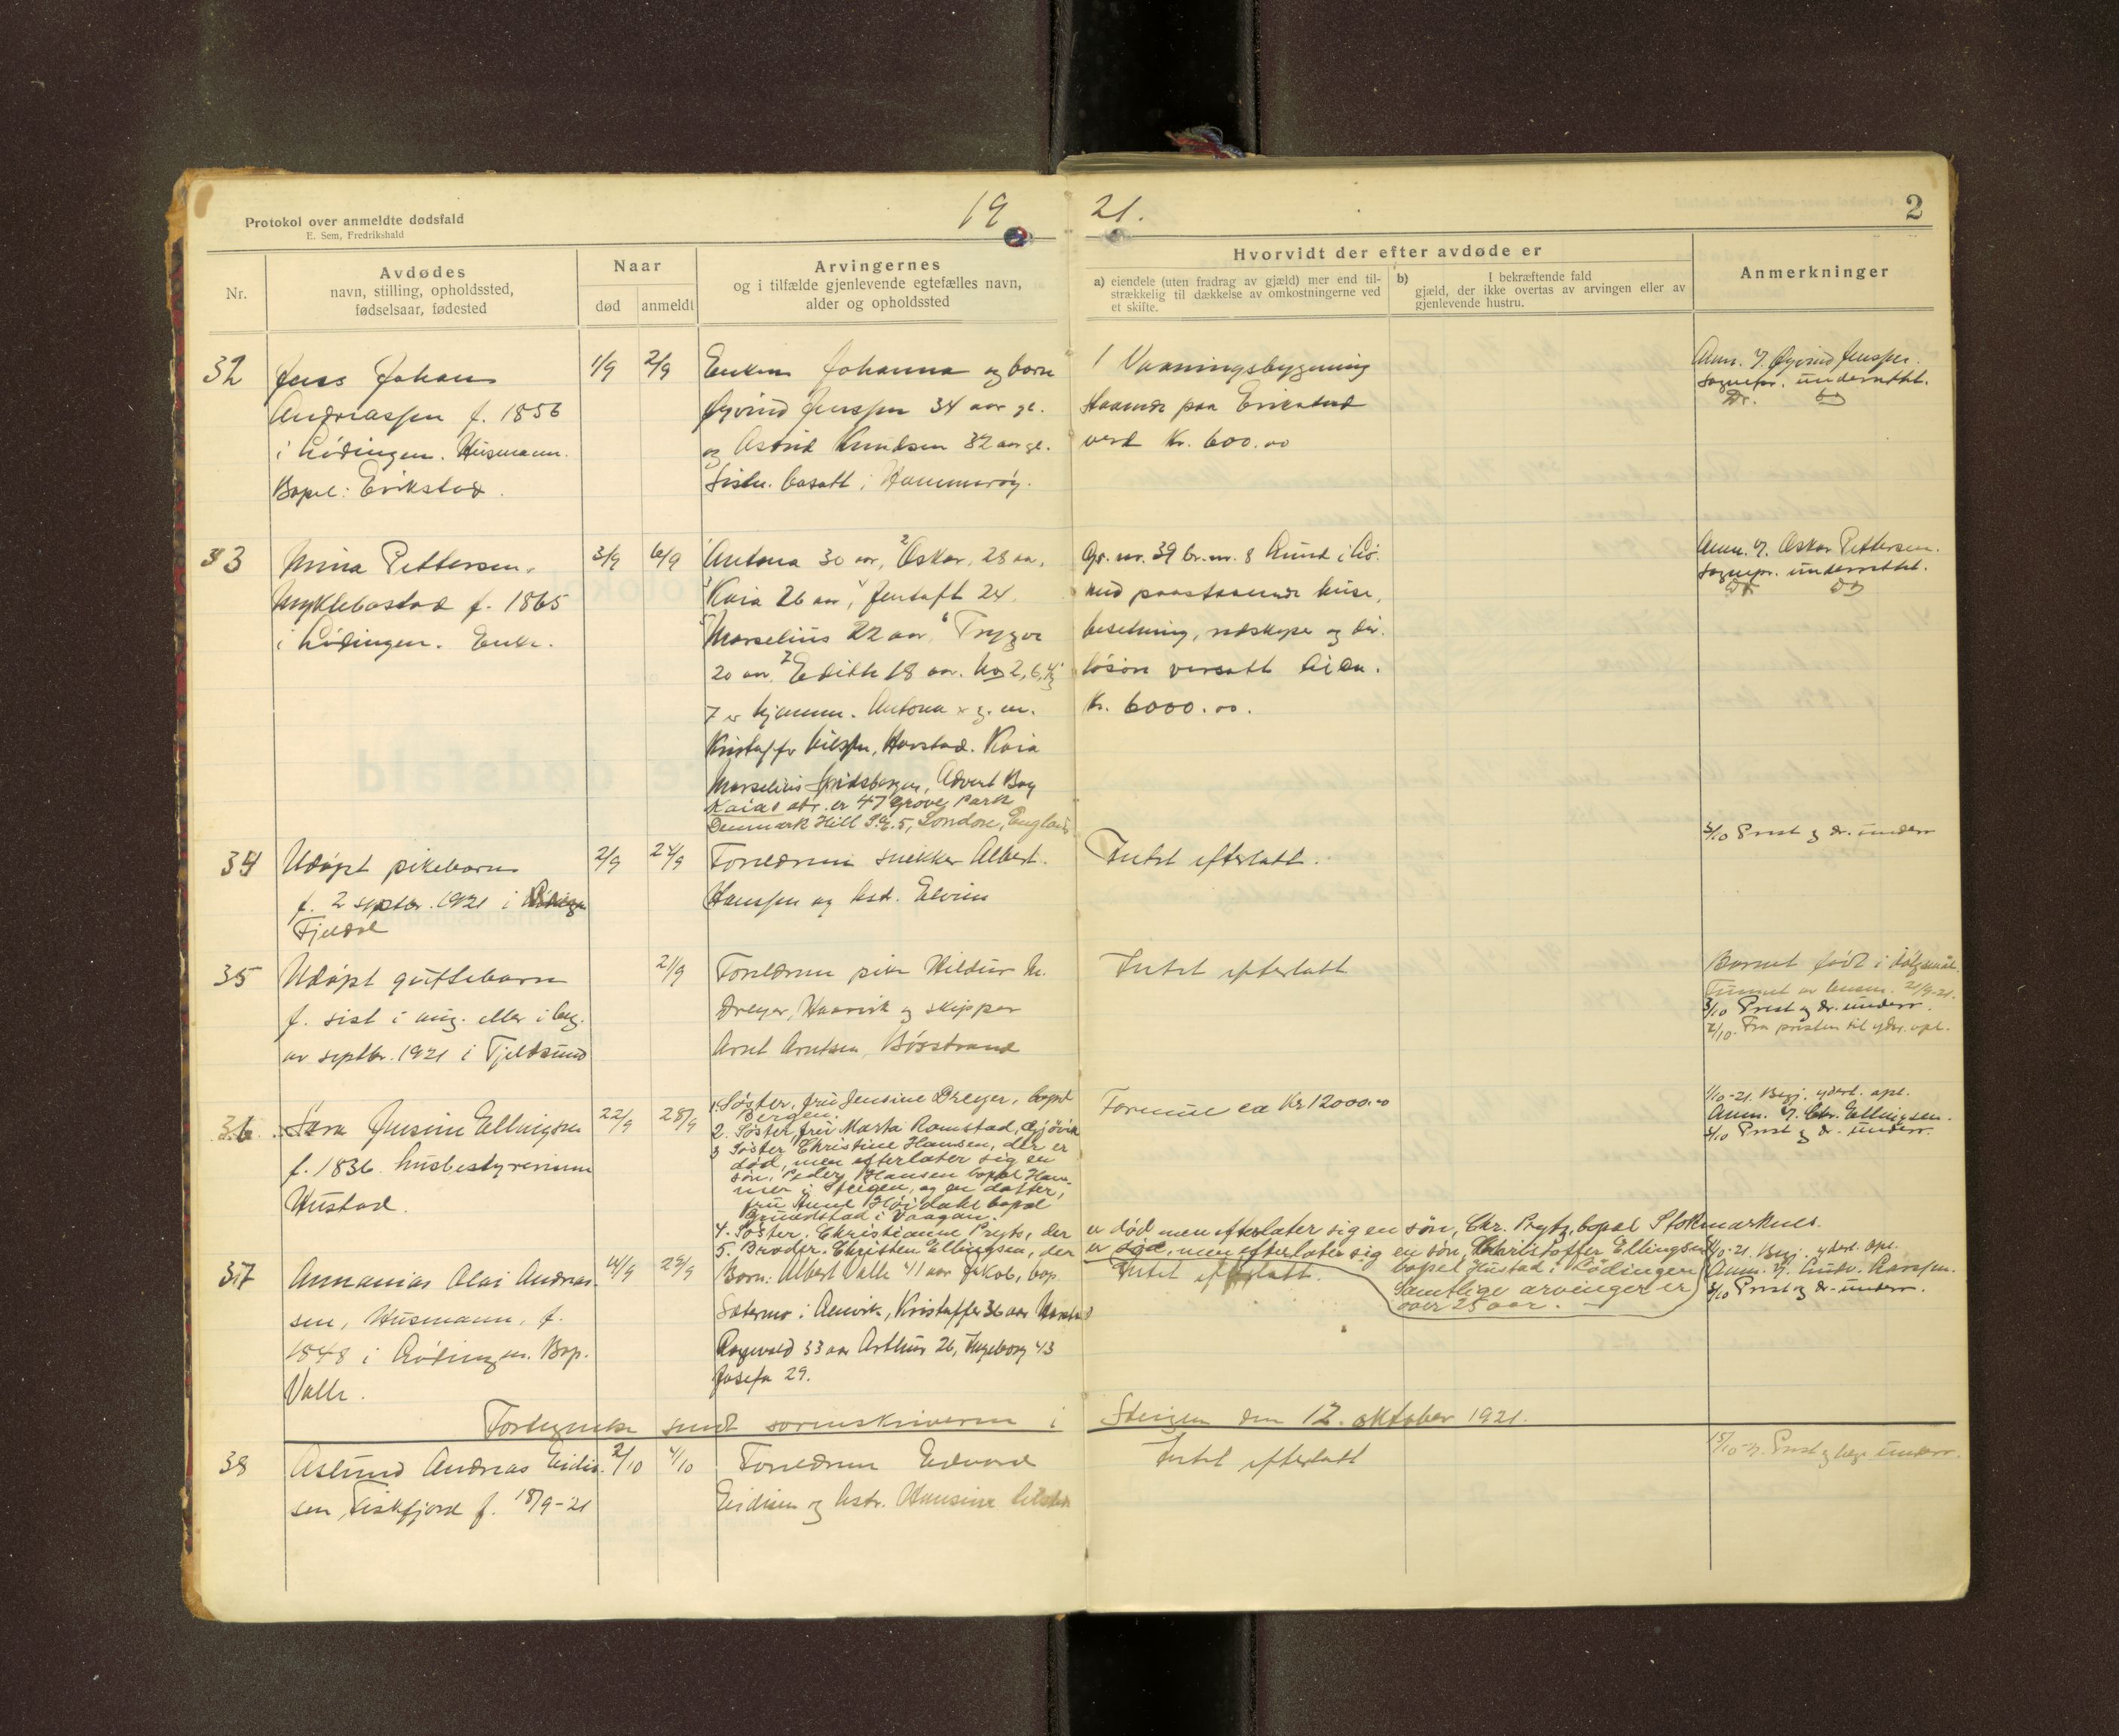 19 21.
2
Protokol over anmeldte dødsfald
E. Sem, Fredrikshald
Nr.
Avdødes
navn, stilling, opholdssted,
fødselsaar, fødested
Naar
død
anmeldt
Arvingernes
og i tilfælde gjenlevende egtefælles navn,
alder og opholdssted
Hvorvidt der efter avdøde er
a) eiendele (uten fradrag av gjæld) mer end til-
strækkelig til dækkelse av omkostningerne ved
et skifte.
b) I bekræftende fald
gjæld, der ikke overtas av arvingen eller av
gjenlevende hustru.
Anmerkninger
32
Jens Johan
Andreassen f. 1856
i Lødingen. Husmann.
Bopel: Erikstad.
1/9
2/9
Enken Johanna og barn
Øyvind Jenssen 34 aar gl.
og Astrid Knudsen 32 aar gl.
Sistn. bosatt i Hammerøy.
1 Vaaningsbygning
staaende paa Erikstad
verd Kr. 600.00
Anm. v. Øyvind Jenssen.
Sognepr. underrettet.
Dr. do
33
Mina Pettersen,
Myklebostad f. 1865
i Lødingen. Enke.
3/9
6/9
Antona 30 aar, 2 Oskar, 28 aa,
3 Kaia 26 aar, 4 Jentoft 24
5 Marselius 22 aar, 6 Trygve
20 aar, 7 Edith 18 aar. No 2, 6, 4 og
7 er hjemme. Antona er g. m.
Kristoffer Nilssen, Havstad. Kaia
Marselius Advent Bay
Kaias adr. er 47 Grove Park
Denmark Hill S.E. 5, London, England
Gr. nr. 39 br. nr. 8 Rund i Lø.
med paastaaende huse,
besetning, redskaper og div.
løsøre
Kr. 6000.00.
Anm. v. Oskar Pettersen.
Sognepr. underrettet.
Dr. do
34
Udøpt pikebarn
f. 2 septbr. 1921 i
Fjeldal
2/9
24/9
Forældrene snekker Albert
Hanssen og hst. Elvine
Intet efterlatt.
3/10 Prest og dr. underr
35
Udøpt guttebarn
f. sist i aug. eller i beg.
av septbr. 1921 i Tjeldsund
21/9
Forældrene pike Hildur M.
Dreyer, Haarvik og skipper
Arnt Arntsen, Bøstrand
Intet efterlatt
Barnet født i dølgsmål.
Funnet av lensm. 21/9-21.
3/10 Prest og dr. underr.
Fra presten til yder. opl.
36
Sara Jensine Ellingsen
f. 1836. husbestyrerinne
Hustad.
22/9
28/9
1. Søster, fru Jensine Dreyer, bopel
Bergen.
2. Søster, fru Marta Ramstad, Gjøvik
3 Søster Christine Hansen, der er
død, men efterlater sig en
søn, Peder Hansen bopel Ham-
mer i Steigen, og en datter,
fru Anne Høidahl bopel
i Vaagan.
4. Søster. Christianne Prytz, der er død men efterlater sig en søn, Chr. Prytz, bopel Stokmarknes.
5. Broder. Christen Ellingsen, der er død, men efterlater sig en søn, Christoffer Ellingsen
bopel Hustad i Lødingen
Samtlige arvinger er
over 25 aar.
Formue ca Kr 12000.-
1/10-21. Begj. yderl. opl.
Anm. v. Chr. Ellingsen.
3/10 Prest og dr. underr.
37
Annanias Olai Andreas-
sen, Husmann, f.
1848 i Lødingen. Bop.
Valle.
29/9
Barn: Albert Valle 41 aar Jakob, bop.
Sætermo i Lenvik, Kristoffer 36 aar Harstad
Ragnvald 33 aar Arthur 26, Ingeborg 43
Josefa 29.
Intet efterlatt.
1/10-21. Begj. yderl. opl.
Anm. v. Ludv. Larssen.
3/10 Prest og dr. underr.
Fortegnelse sendt sorenskriveren i Steigen den 12. oktober 1921.
38
Aslund Andreas Eidis-
sen, Fiskfjord f. 18/9-21
2/10
4/10
Forældrene Edvard
Eidissen og hstr. Hansine
Intet efterlatt
15/10-21. Prest og læge underr.